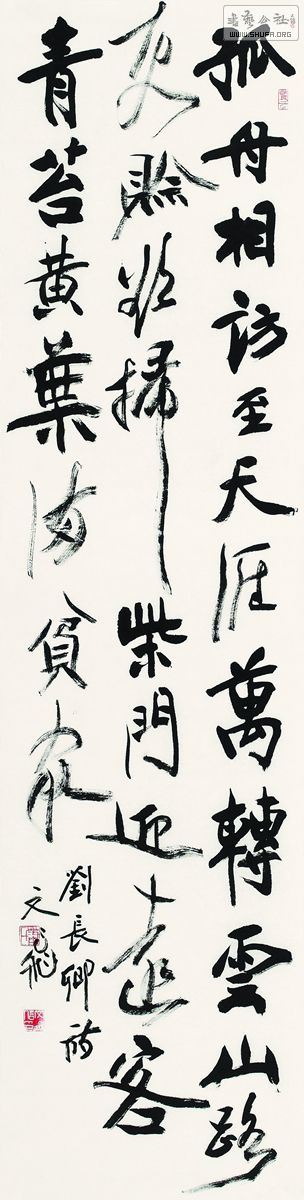 孤舟相訪至天涯萬轉雲山路
更賒欲掃柴門迎遠客
青苔黃葉滿貧家
劉長卿詩
文飛
書藝公社
WWW.SHUFA.ORG